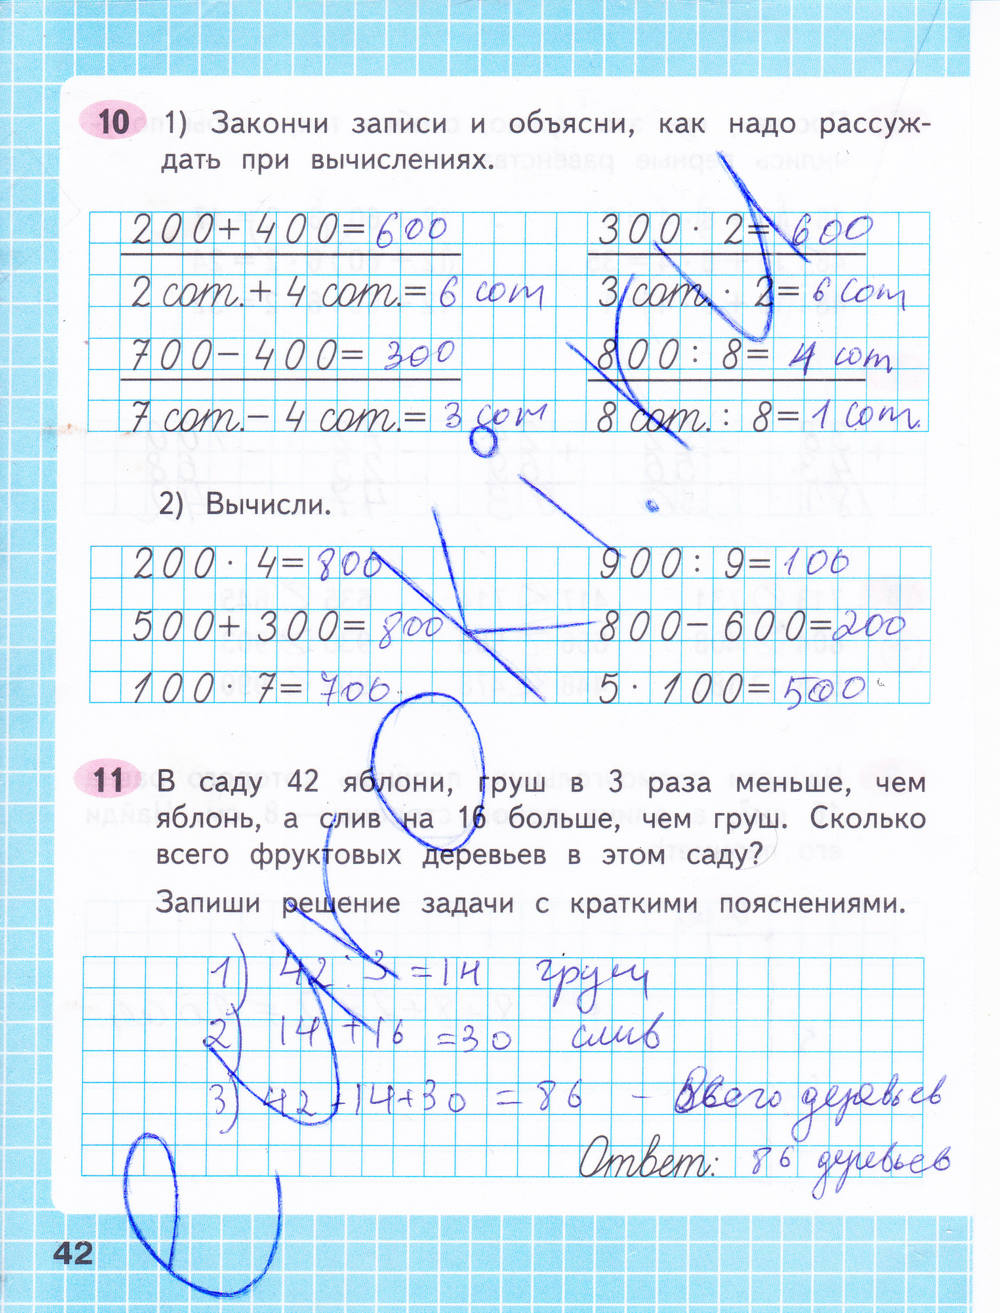 10 1) Закончи записи и объясни, как надо рассуж-
дать при вычислениях.
200+400=600 300·2=600
2 сот.+4 сот.=6 сот 3 сот.·2=6 сот
700-400=300 800:8=4 сот
7 сот.-4 сот.=3 сот 8 сот.:8=1 сот.
2) Вычисли.
200·4=800 900:9=100
500+300=800 800-600=200
100·7=700 5·100=500
11 В саду 42 яблони, груш в 3 раза меньше, чем
яблонь, а слив на 16 больше, чем груш. Сколько
всего фруктовых деревьев в этом саду?
Запиши решение задачи с краткими пояснениями.
1) 42:3=14 груш
2) 14+16=30 слив
3) 42+14+30=86 - Всего деревьев
Ответ: 86 деревьев
42